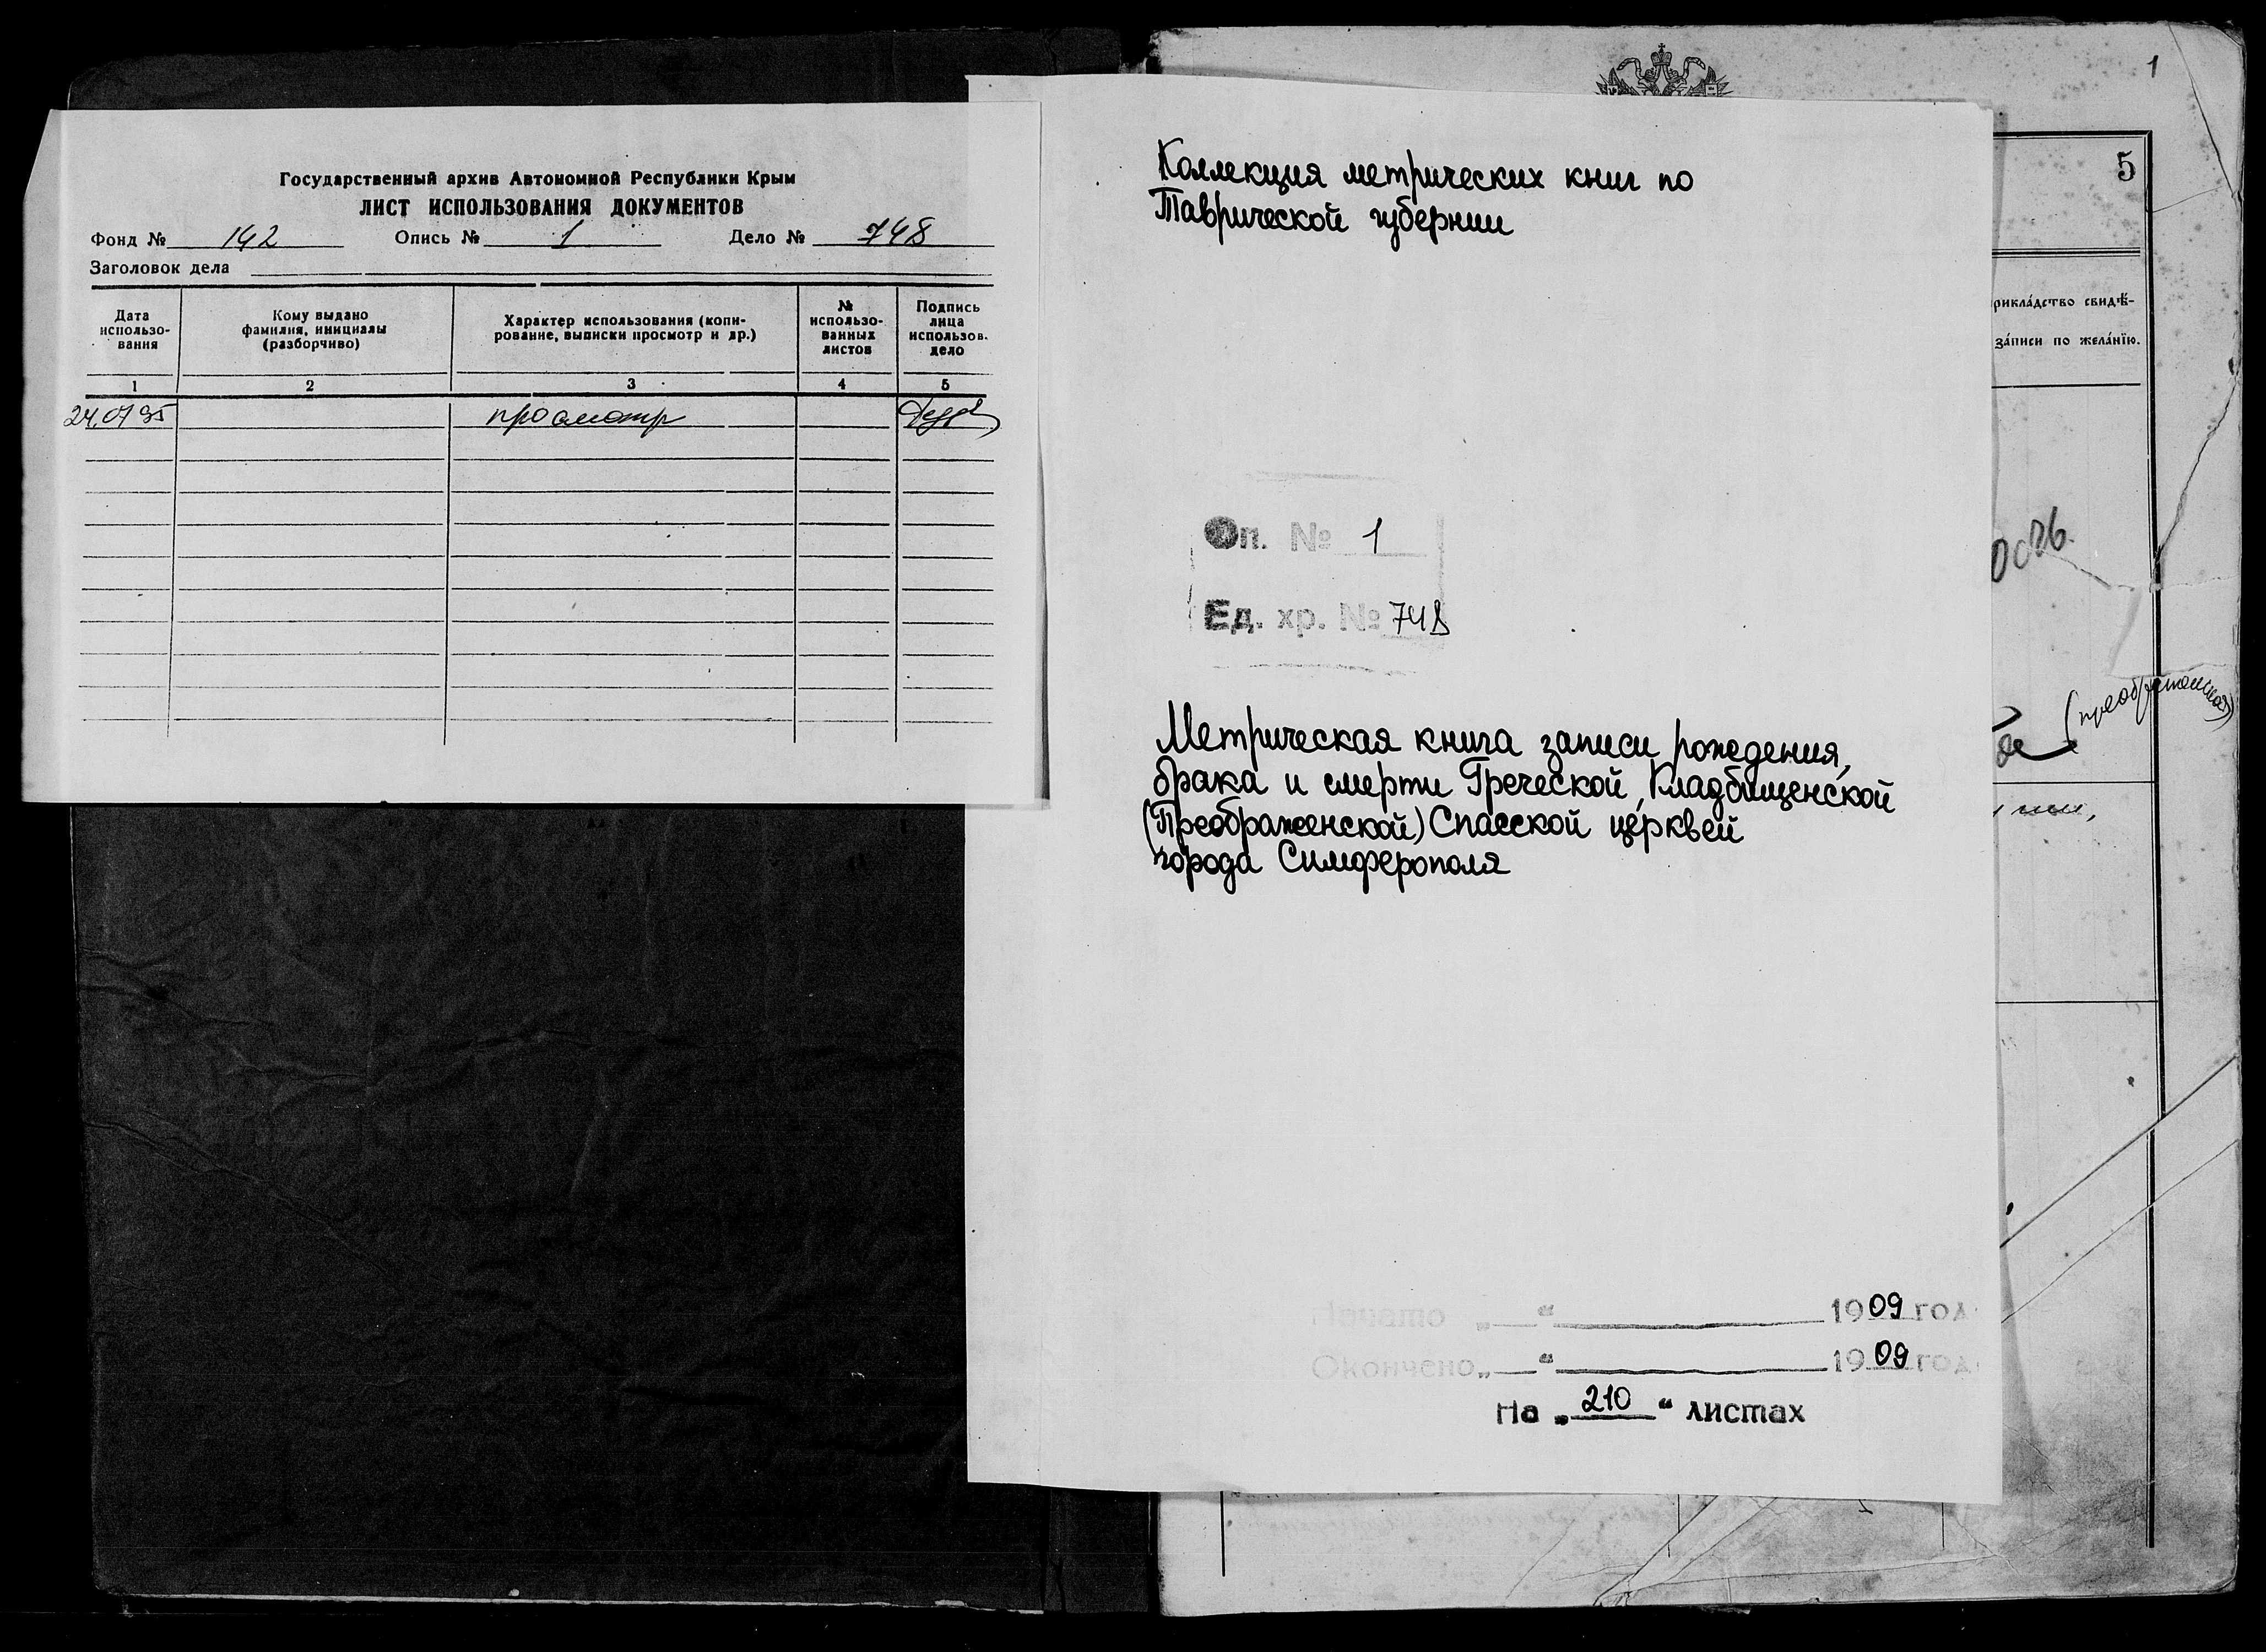 Государственный архив Автономной Республики Крым
ЛИСТ ИСПОЛЬЗОВАНИЯ ДОКУМЕНТОВ
Фонд № 142 Опись № 1 Дело № 748
Заголовок дела
Дата использо-вания
Кому выдано фамилия, инициалы (разборчиво)
Характер использования (копи-рование, выписки просмотр и др.)
№ использо-ванных листов
Подпись лица использов. дело
1 2 3 4 5
24.07.95 просмотр
Коллекция метрических книг по
Таврической губернии
Оп. № 1
Ед. хр. № 748
Метрическая книга записи рождения,
брака и смерти Греческой, Кладбищенской
(Преображенской) Спасской церквей
города Симферополя
Начато „ “ 1909 год
Окончено „ “ 1909 год
На „ 210 “ листах
1
5
рикла́дство свидѣ-
за́писи по жела́нїю.
(преображенская)